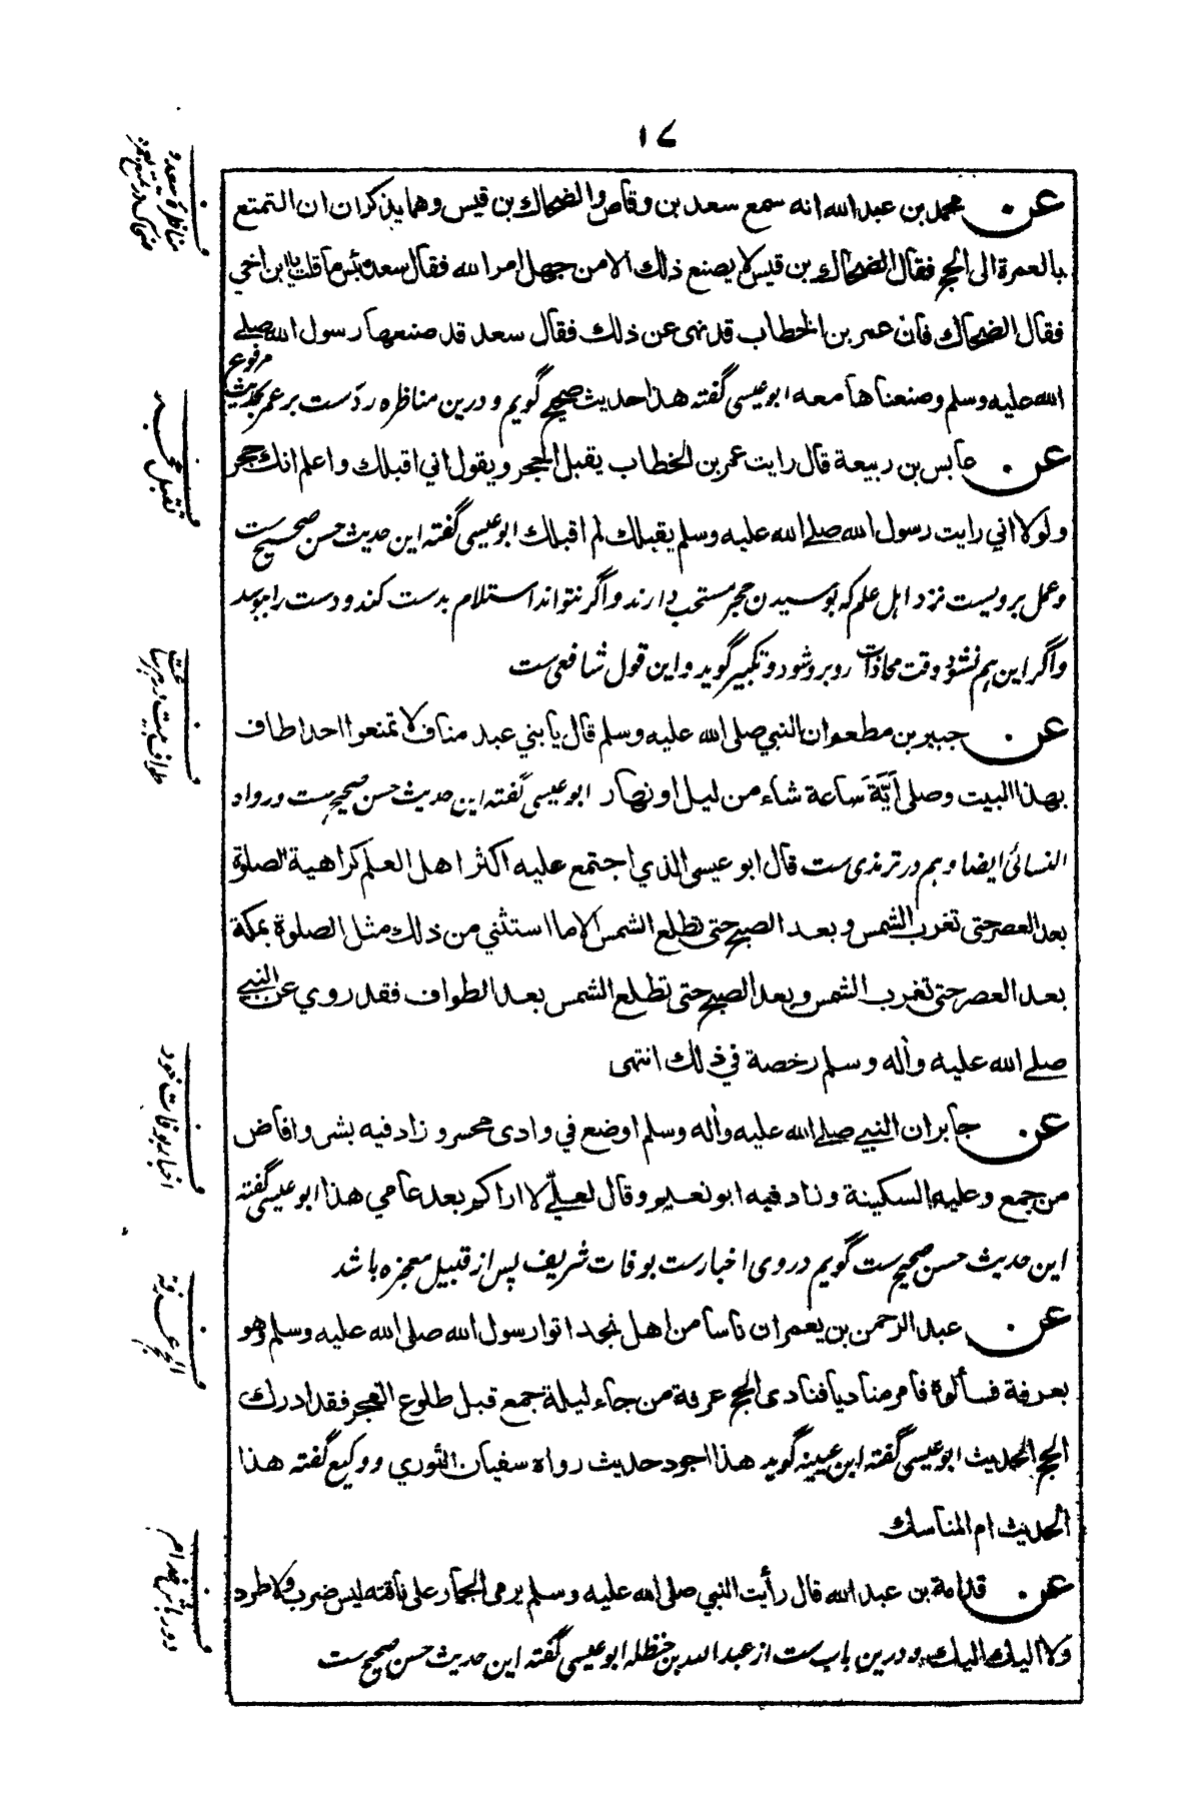 ١٧
عن محمد بن عبد الله انه سمع سعد بن وقاص والضحاك بن قيس وهما يذكران ان التمتع
بالعمرة الى الحج فقال الضحاك بن قيس لا يصنع ذلك الا من جهل امر الله فقال سعد بئس ما قلت يا ابن اخي
فقال الضحاك فان عمر بن الخطاب قد نهى عن ذلك فقال سعد قد صنعها رسول الله صلے
الله عليه وسلم وصنعناها معه ابو عیسی گفته هذا حديث صحيح گویم و درین مناظره ردست بر عمر بحدیث مرفوع
عن عابس بن ربيعة قال رايت عمر بن الخطاب يقبل الحجر ويقول اني اقبلك واعلم انك حجر
ولولا اني رايت رسول الله صلے الله عليه وسلم يقبلك لم اقبلك ابو عیسی گفته این حدیث حسن صحیح ست
وعمل برویست نزد اہل علم کہ بوسیدن حجر مستحب دارند واگر نتواند استلام بدست کند و دست را ببوسد
واگر این ہم نشود وقت محاذات روبرو شود و تکبیر گوید و این قول شافعی ست
عن جبير بن مطعم ان النبي صلى الله عليه وسلم قال يا بني عبد مناف لا تمنعوا احدا طاف
بهذا البيت وصلى أيَّةَ ساعة شاء من ليل او نهار ابو عیسی گفته این حدیث حسن صحیح ست ورواه
النسائي ايضا وہم در ترمذی ست قال ابو عيسى الذي اجتمع عليه اكثر اهل العلم كراهية الصلوة
بعد العصر حتى تغرب الشمس وبعد الصبح حتى تطلع الشمس الا ما استثني من ذلك مثل الصلوة بمكة
بعد العصر حتى تغرب الشمس وبعد الصبح حتى تطلع الشمس بعد الطواف فقد روي عن النبي
صلے الله عليه وآله وسلم رخصة في ذلك انتهى
عن جابر ان النبي صلے الله عليه وآله وسلم اوضع في وادى محسر و زاد فيه بشر وافاض
من جمع وعليه السكينة وزاد فيه ابو نعيم وقال لعلّي لا اراكم بعد عامي هذا ابو عیسی گفته
این حدیث حسن صحیح ست گویم در وی اخبارست بوفات شریف پس از قبیل معجزه باشد
عن عبد الرحمن بن يعمر ان ناسا من اهل نجد اتوا رسول الله صلى الله عليه وسلم وهو
بعرفة فسألوه فامر مناديا فنادى الحج عرفة من جاء ليلة جمع قبل طلوع الفجر فقد ادرك
الحج الحديث ابو عیسی گفته ابن عیینه گوید هذا اجود حديث رواه سفيان الثوري ووكيع گفته هذا
الحديث ام المناسك
عن قدامة بن عبد الله قال رأيت النبي صلى الله عليه وسلم يرمي الجمار على ناقته ليس ضرب ولا طرد
ولا اليك اليك و درین باب ست از عبد الله بن حنظله ابو عیسی گفته این حدیث حسن صحیح ست
مناظرۂ سعد و
تقبیل حجر
طواف بیت در ہر ساعت
اخبار بوفات خود
الحج عرفة